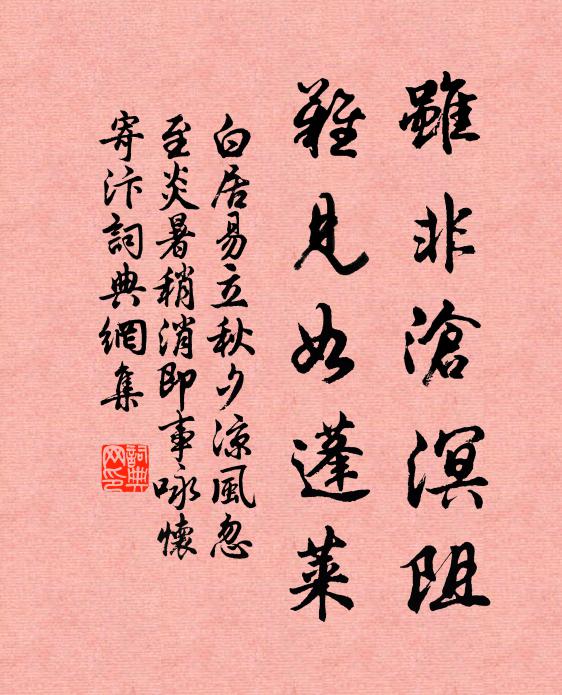 雖非滄溟阻
難見如蓬萊
白居易立秋夕涼風忽
至炎暑稍消即事咏懷
寄汴詞典網集
詞典
网印